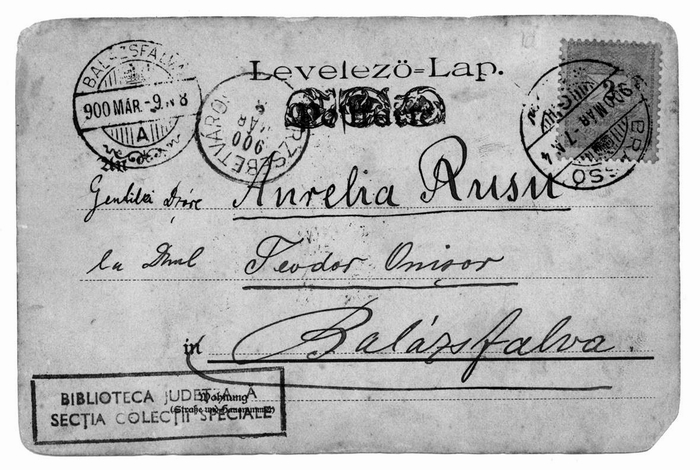 Levelező-Lap.
BALÁZSFALVA
900 MÁR.-9.N 8
A
ERZSÉBETVÁROS
900
MÁR
BRASSÓ
900 MÁR -7.N 4
2
An
Gentilei Dșóre Aurelia Rusu
la Dnul Teodor Onișor
in Balázsfalva.
Wohnung
(Straße und Hausnummer)
BIBLIOTECA JUDEȚEANĂ
SECȚIA COLECȚII SPECIALE